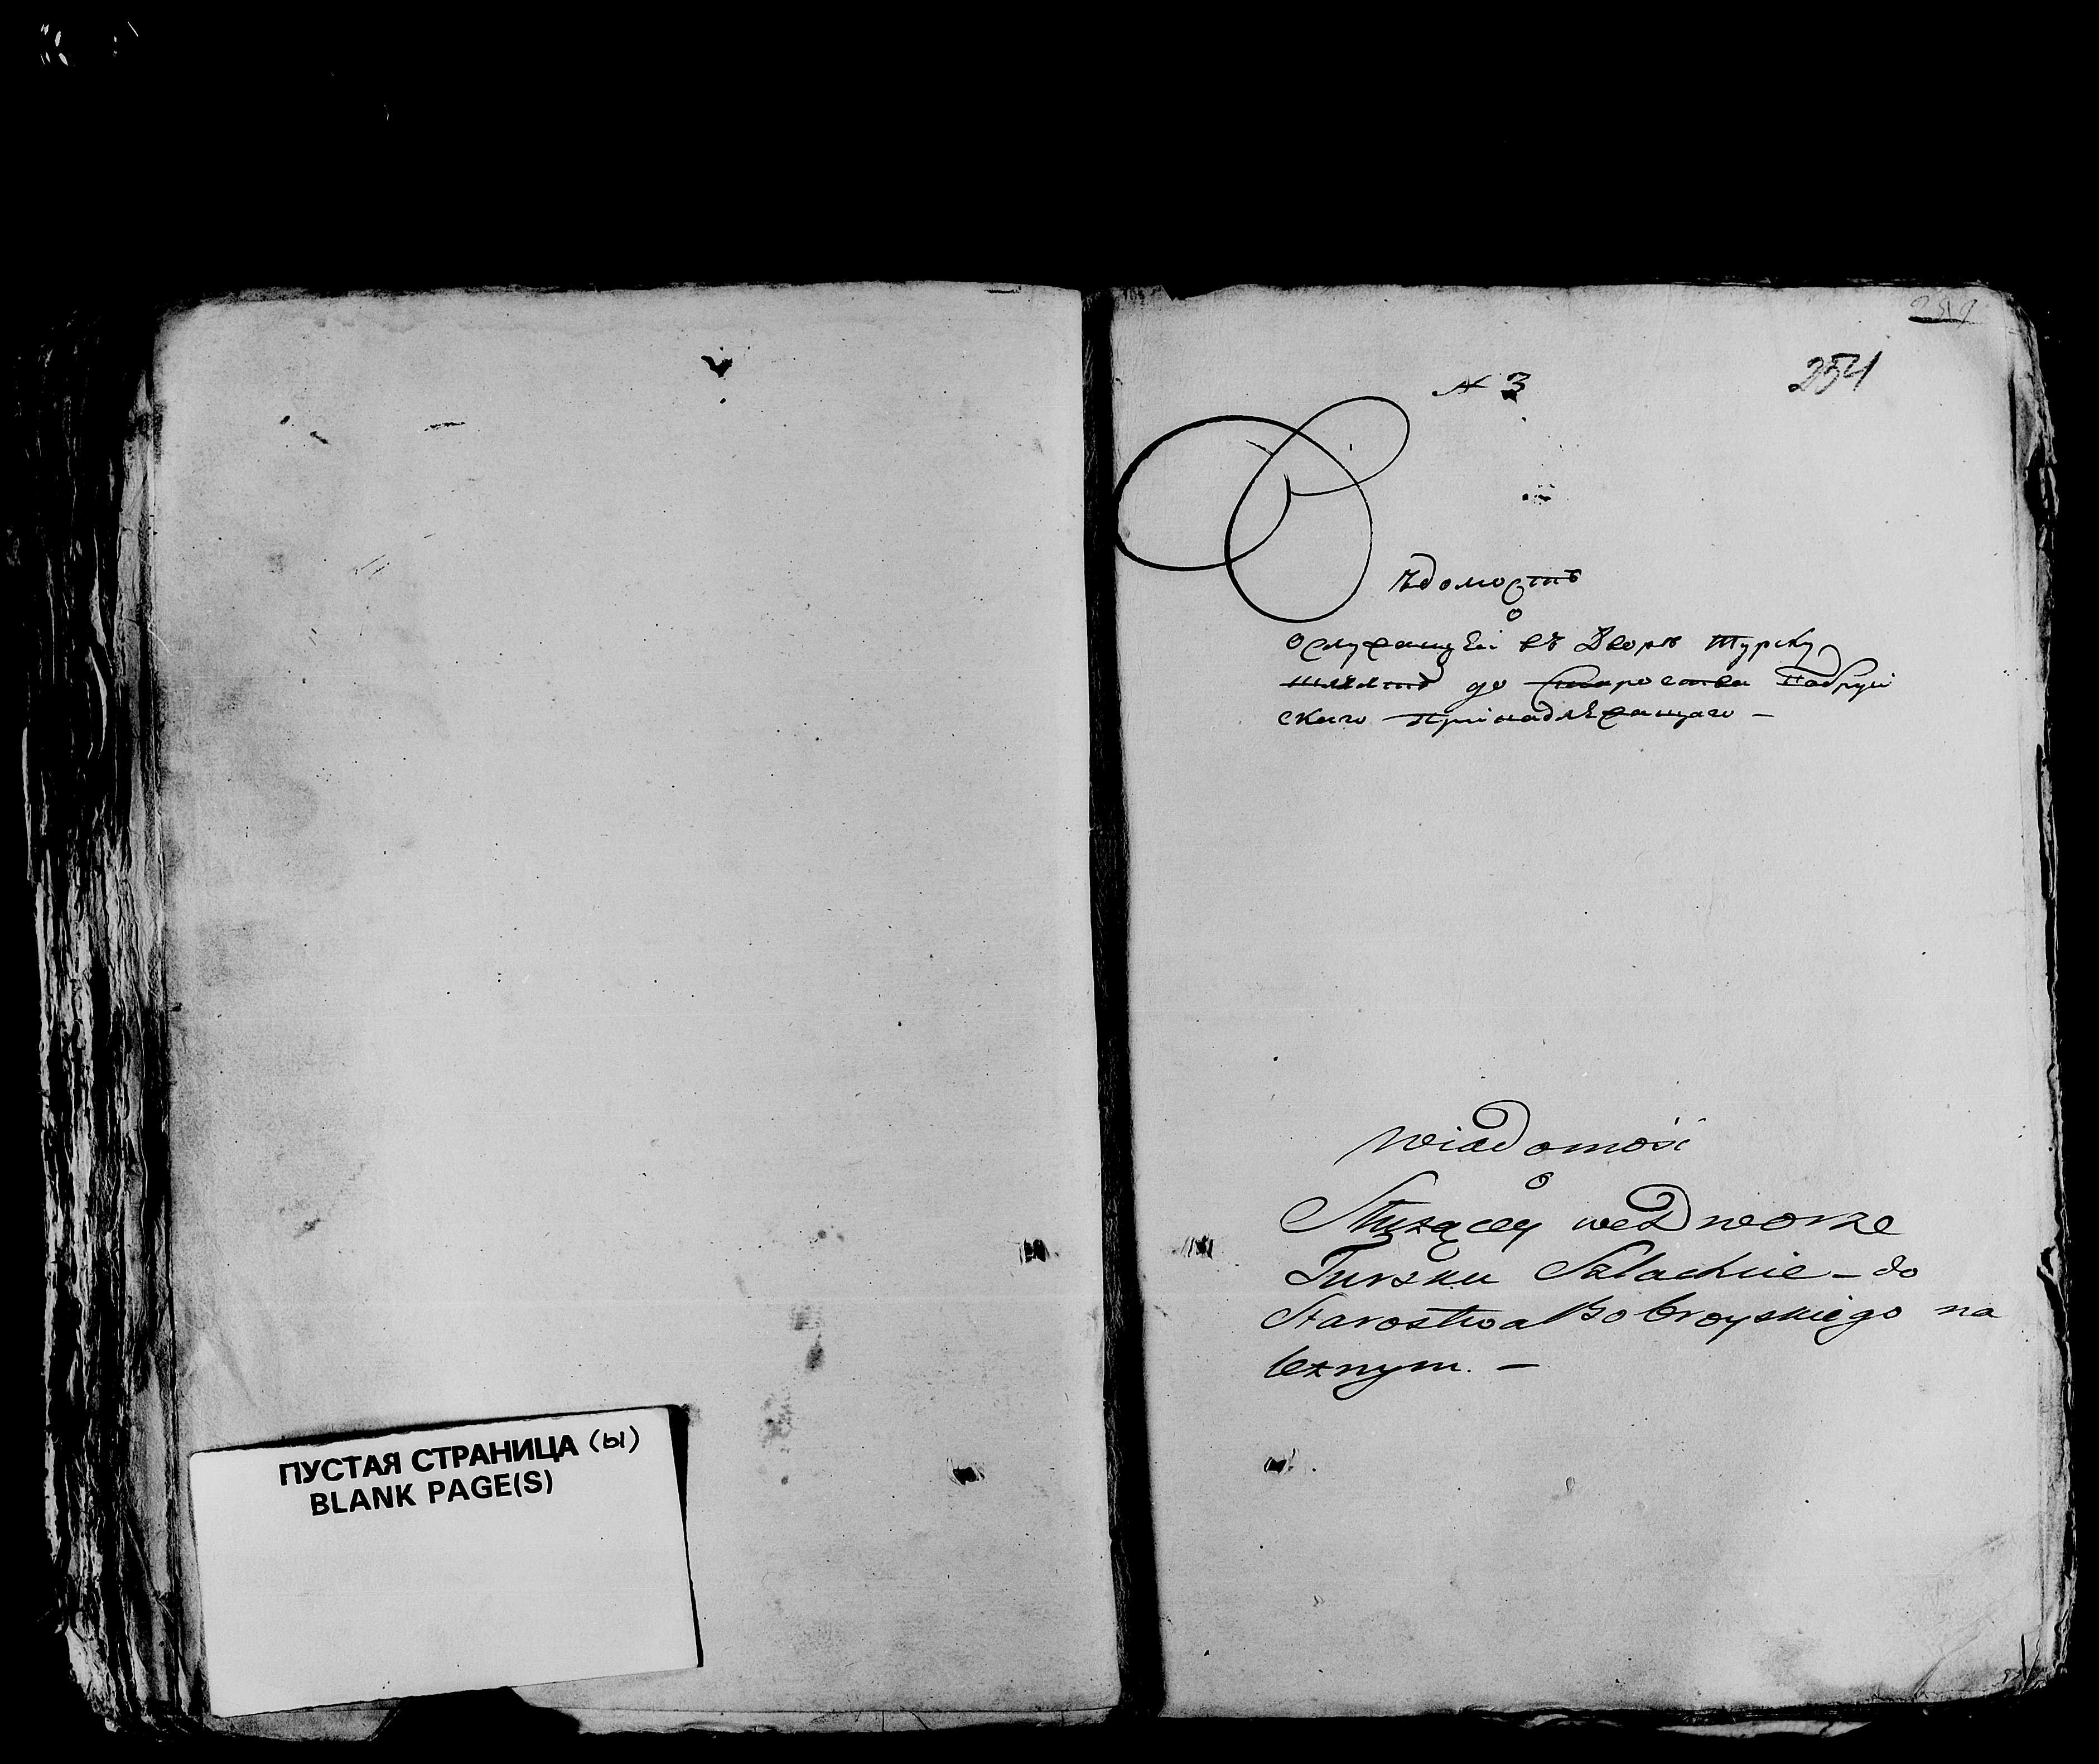 ПУСТАЯ СТРАНИЦА (Ы)
BLANK PAGE(S)
254
N 3
Вѣдомость
о
Служащей въ Дворѣ Турску
шляхтѣ до Староства Бобруй
скаго принадлежащаго —
Wiadomość
o
Służącey we Dworze
Tursku Szlachcie – do
Starostwa Bobroyskiego na
leżnym. —